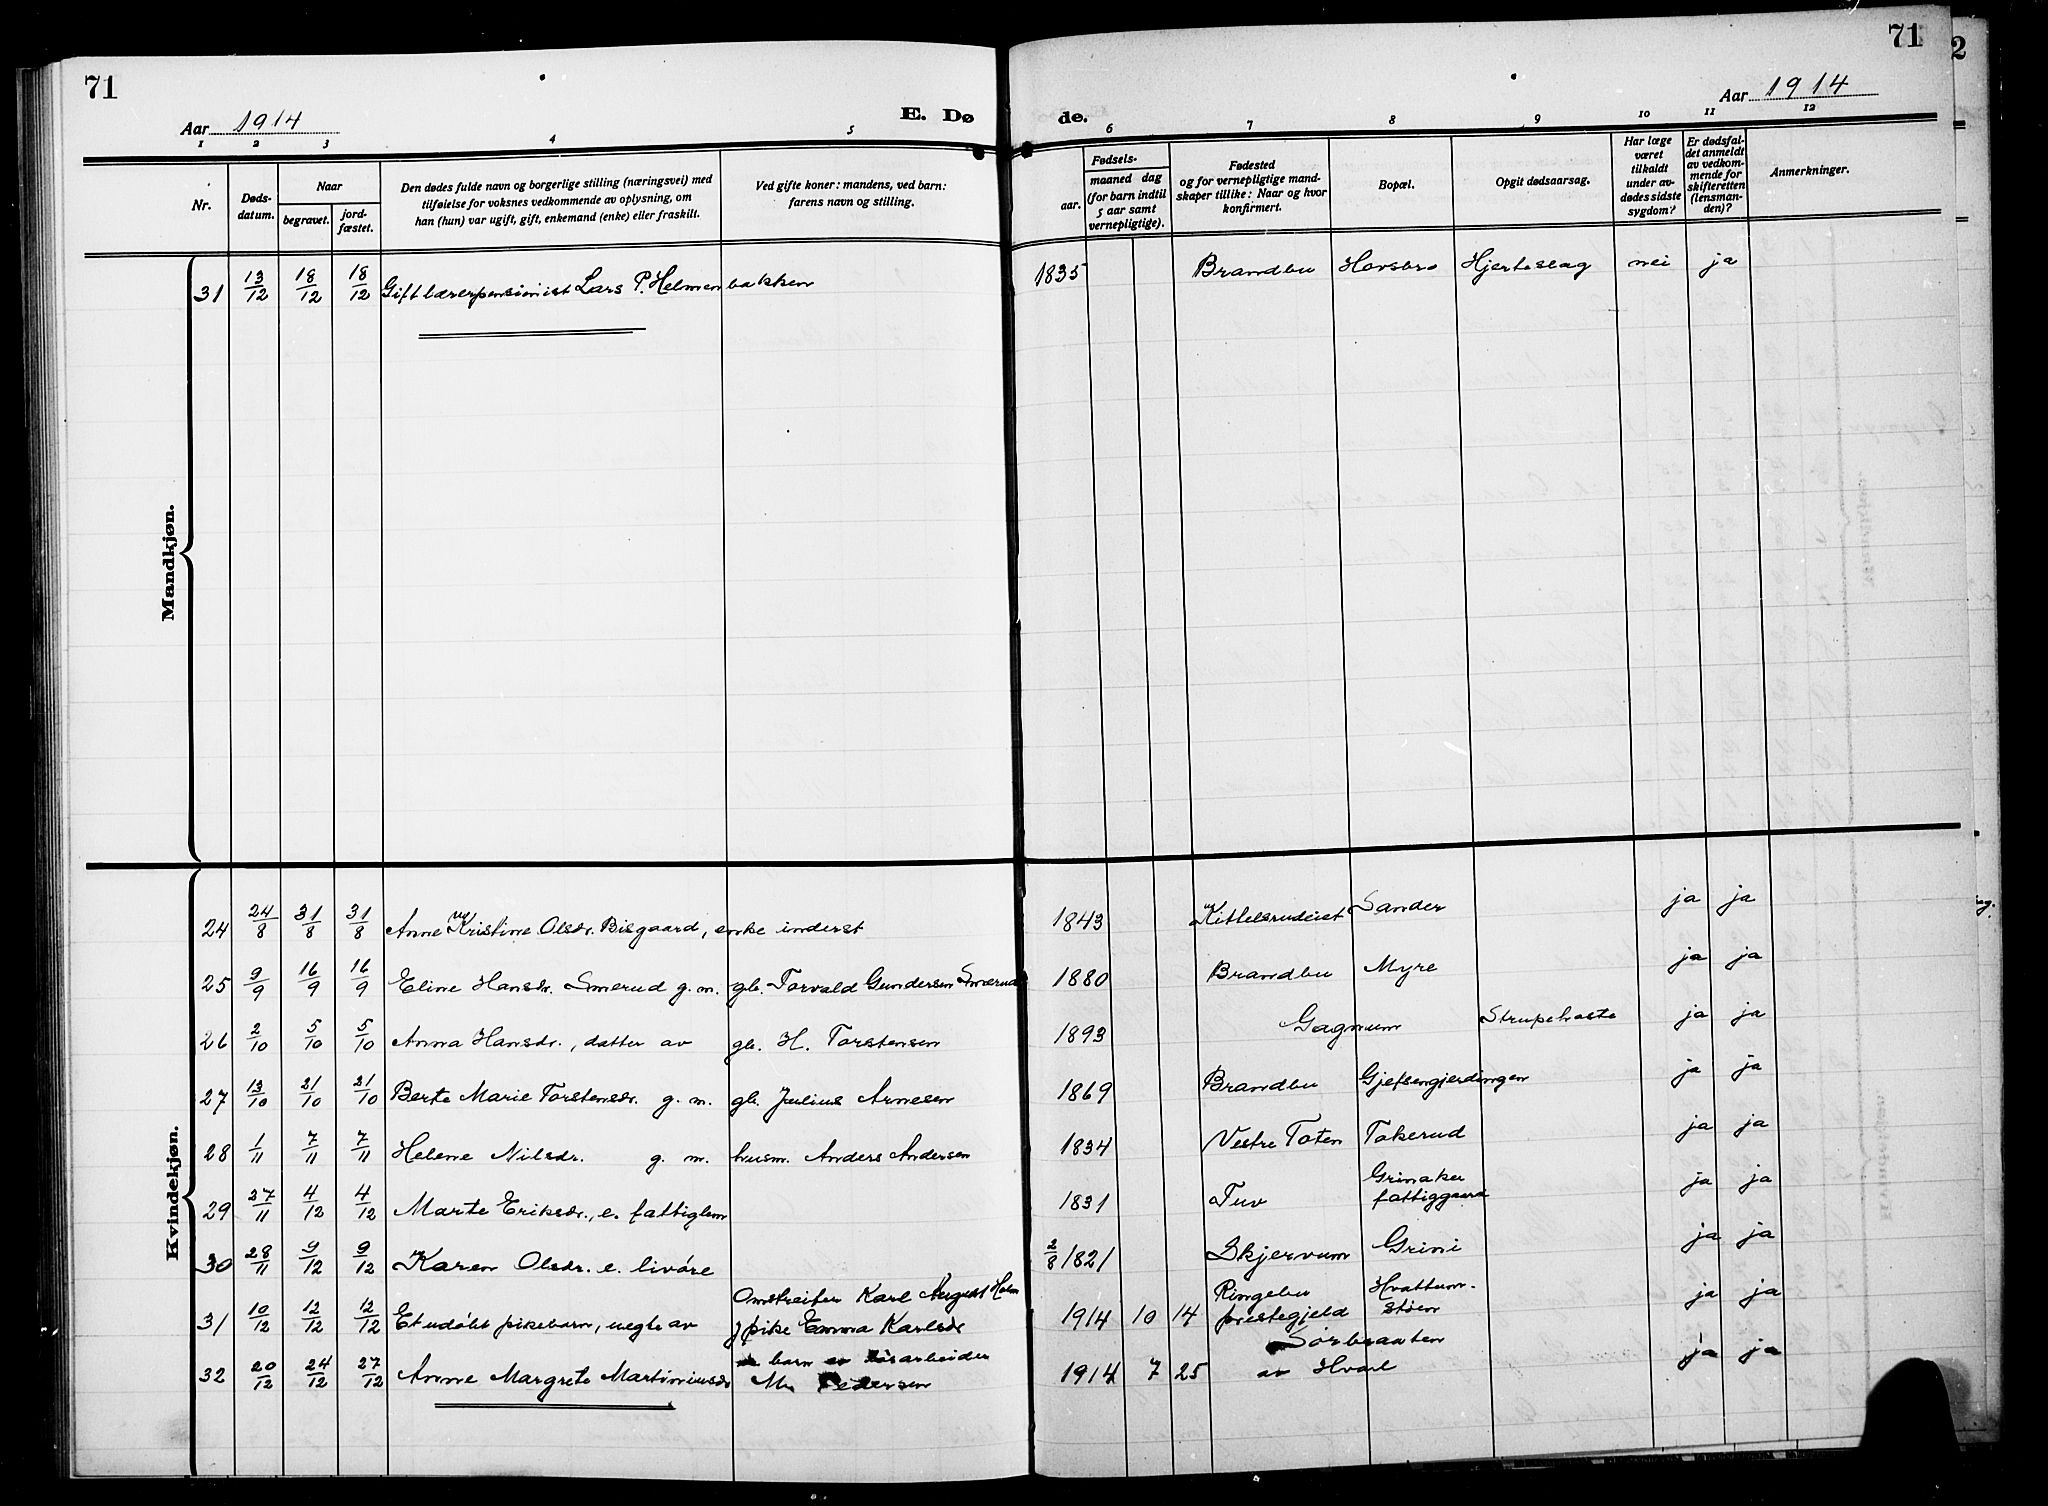 71
Aar 1914
E. Dø
de.
71
Aar 1914
2
1 2 3 4 5 6 7 8 9 10 11 12
Nr.
Døds-
datum.
Naar
begravet.
jord-
fæstet.
Den dødes fulde navn og borgerlige stilling (næringsvei) med
tilføielse for voksnes vedkommende av oplysning, om
han (hun) var ugift, gift, enkemand (enke) eller fraskilt.
Ved gifte koner: mandens, ved barn:
farens navn og stilling.
Fødsels-
aar.
maaned dag
(for barn indtil
5 aar samt
vernepligtige).
Fødested
og for vernepligtige mand-
skaper tillike: Naar og hvor
konfirmert.
Bopæl.
Opgit dødsaarsag.
Har læge
været
tilkaldt
under av-
dødes sidste
sygdom?
Er dødsfal-
det anmeldt
av vedkom-
mende for
skifteretten
(lensman-
den)?
Anmerkninger.
Mandkjøn.
31 13/12 18/12 18/12 Gift lærerpensionist Lars P. Helmenbakken 1835 Brandbu Hovsbro Hjerteslag nei ja
Kvindekjøn.
24 24/8 31/8 31/8 Anne Kristine Olsdr. Bisgaard, enke inderst 1843 Kittelsrudeiet Sander ja ja
25 9/9 16/9 16/9 Eline Hansdr. Smerud g. m. gb. Torvald Gundersen Smerud 1880 Brandbu Myre ja ja
26 2/10 5/10 5/10 Anna Hansdr., datter av gb. H. Torstensen 1893 Gagnum Strupehoste ja ja
27 13/10 21/10 21/10 Berte Marie Torstensdr. g. m. gb. Julius Arnesen 1869 Brandbu Gjefsengjerdingen ja ja
28 1/11 7/11 7/11 Helene Nilsdr. g. m. husm. Anders Andersen 1834 Vestre Toten Tokerud ja ja
29 27/11 4/12 4/12 Marte Eriksdr., e. fattiglem 1831 Tuv Grinaker
fattiggaard ja ja
30 28/11 9/12 9/12 Karen Olsdr. e. livøre 2/8 1821 Skjervum Grini ja ja
31 10/12 12/12 12/12 Et udøbt pikebarn, uegte av Omstreifer Karl August Holm
pike Emma Karlsdr 1914 10 14 Ringebu
prestegjeld Hvattum-
støen ja ja
32 20/12 24/12 27/12 Anne Margrete Martiniusdr barn
M. Pedersen 1914 7 25 Sørbraaten
av Hval ja ja